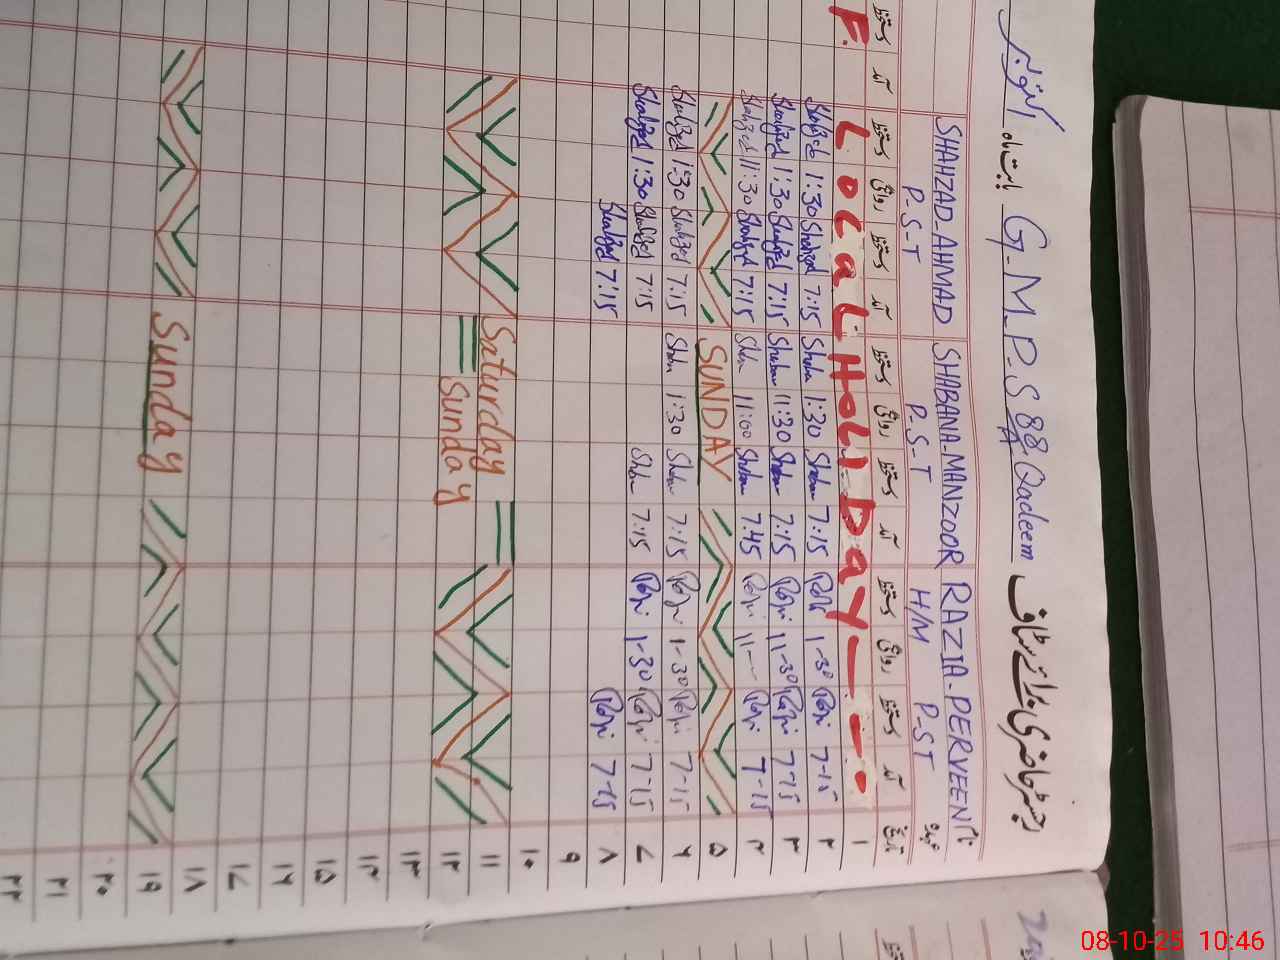 رجسٹر حاضری برائے سٹاف G.M.P.S 88/A Qadeem بابت ماہ اکتوبر
SHAHZAD-AHMAD SHABANA-MANZOOR RAZIA-PERVEEN نام
P-S-T P-S-T H/M P-ST عہدہ
دستخط آمد دستخط روانگی دستخط آمد دستخط روانگی دستخط آمد دستخط روانگی دستخط آمد تاریخ
F. LocaL HoLiDay ۱
Shahzad 1:30 Shahzad 7:15 1:30 7:15 1-30 7-15 ۲
Shahzad 1:30 Shahzad 7:15 11:30 7:15 11-30 7-15 ۳
Shahzad 11:30 Shahzad 7:15 11:00 7:45 11-- 7-15 ۴
SUNDAY ۵
Shahzad 1:30 Shahzad 7:15 1:30 7:15 1-30 7-15 ۶
Shahzad 1:30 Shahzad 7:15 7:15 1-30 7-15 ۷
Shahzad 7:15 7-15 ۸
۹
۱۰
Saturday ۱۱
Sunday ۱۲
۱۳
۱۴
۱۵
۱۶
۱۷
۱۸
Sunday ۱۹
۲۰
۲۱
۲۲
08-10-25 10:46